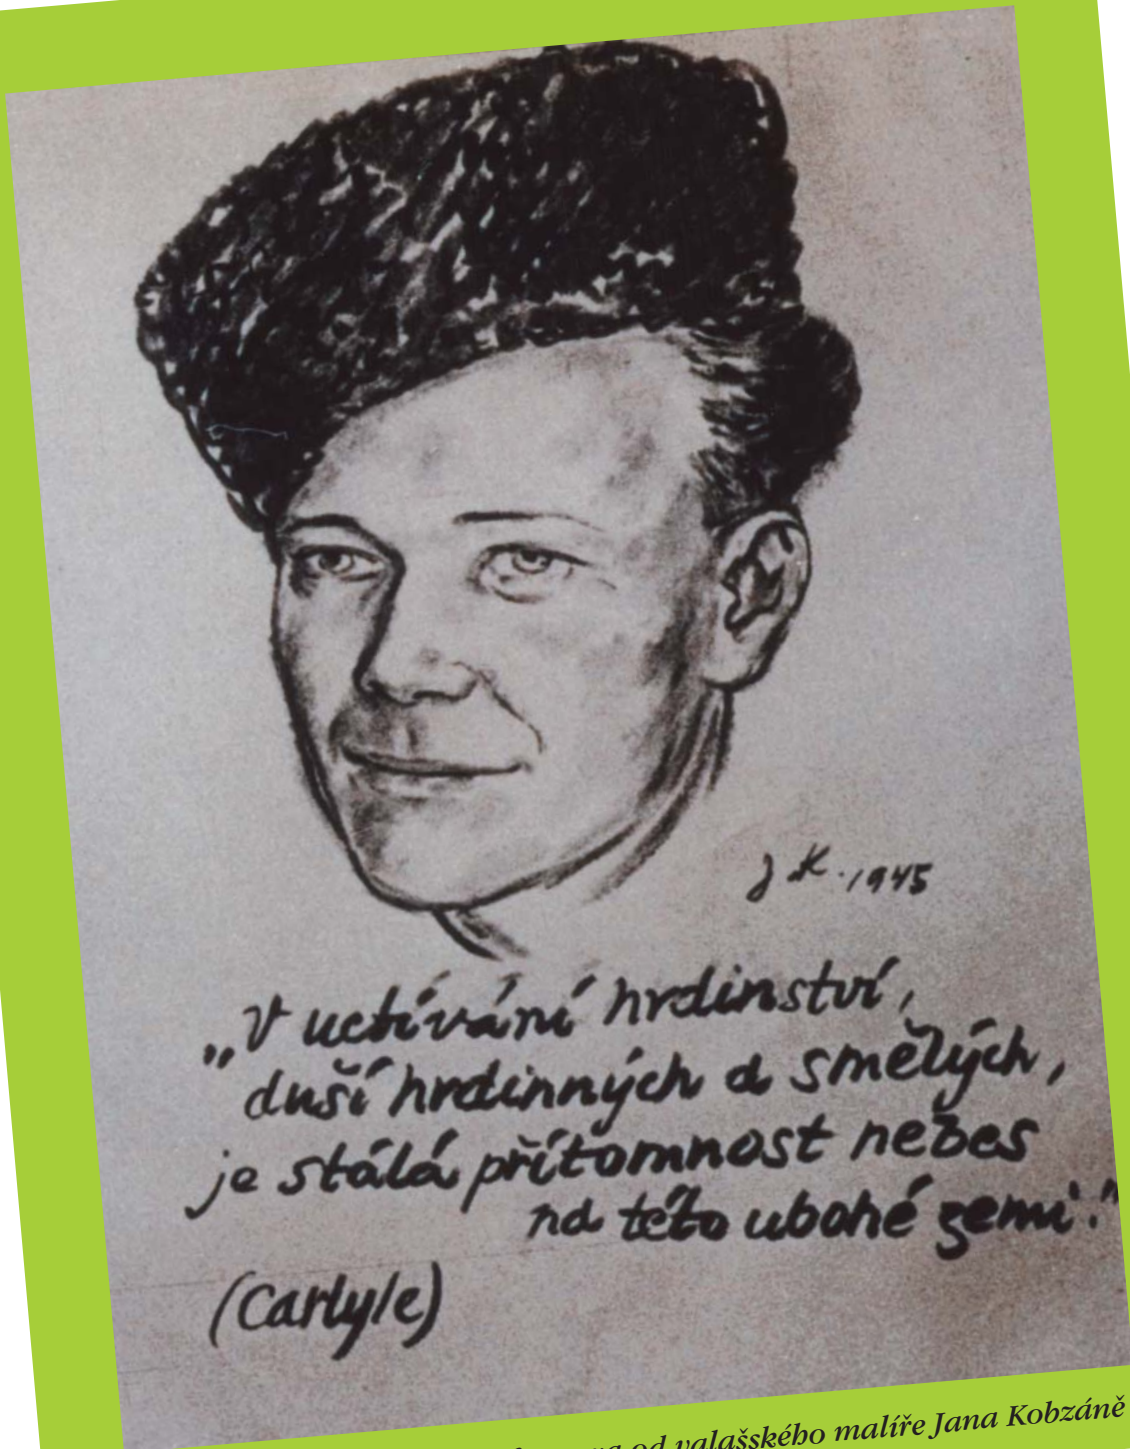 J.K. 1945
„V uctívání hrdinství,
duší hrdinných a smělých,
je stálá přítomnost nebes
na této ubohé zemi."
(Carlyle)
od valašského malíře Jana Kobzáně